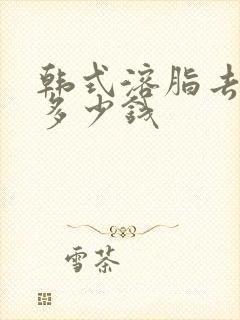 韩式溶脂去
多少钱
雪茶